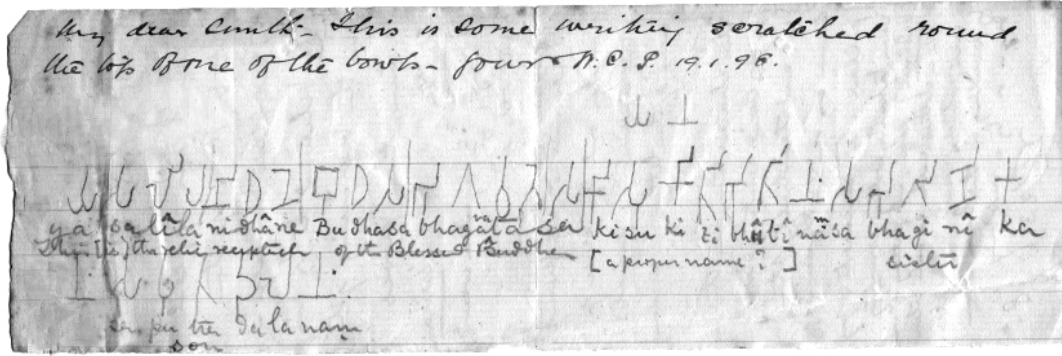 My dear Smith – This is some writing scratched round
the top of one of the bowls – Yours W.C.P. 19.1.98.
𑀬 𑀦
𑀬 𑀲 𑀮𑀺 𑀮 𑀦𑀺 𑀥 𑀦𑁂 𑀩𑀼 𑀥 𑀲 𑀪 𑀕 𑀯 𑀢 𑀲 𑀓𑀺 𑀲𑀼 𑀓𑀺 𑀢𑀺 𑀪 𑀢𑀺 𑀦𑀁 𑀲 𑀪 𑀕𑀺 𑀦𑀺 𑀓
ya salîla nidhâne Budhasa bhagavata sa kisu ki ti bhâtî nâsa bhagi nî ka
This [is] the relic receptacle of the Blessed Buddha [a proper name?] sister
𑀦 𑀲 𑀧𑀼 𑀢 𑀤 𑀮 𑀦𑀁
sa pu ta da la naṃ
son